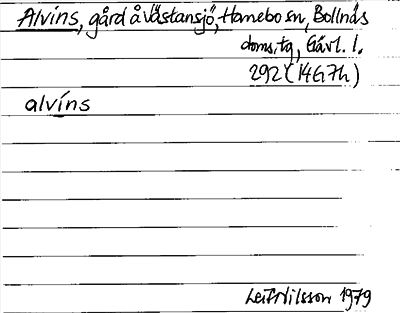 Alvins, gård å Västansjö, Hanebo sn, Bollnäs
doms. tg, Gävl. l.
292 (14G7h)
alvíns
Leif Nilsson 1979